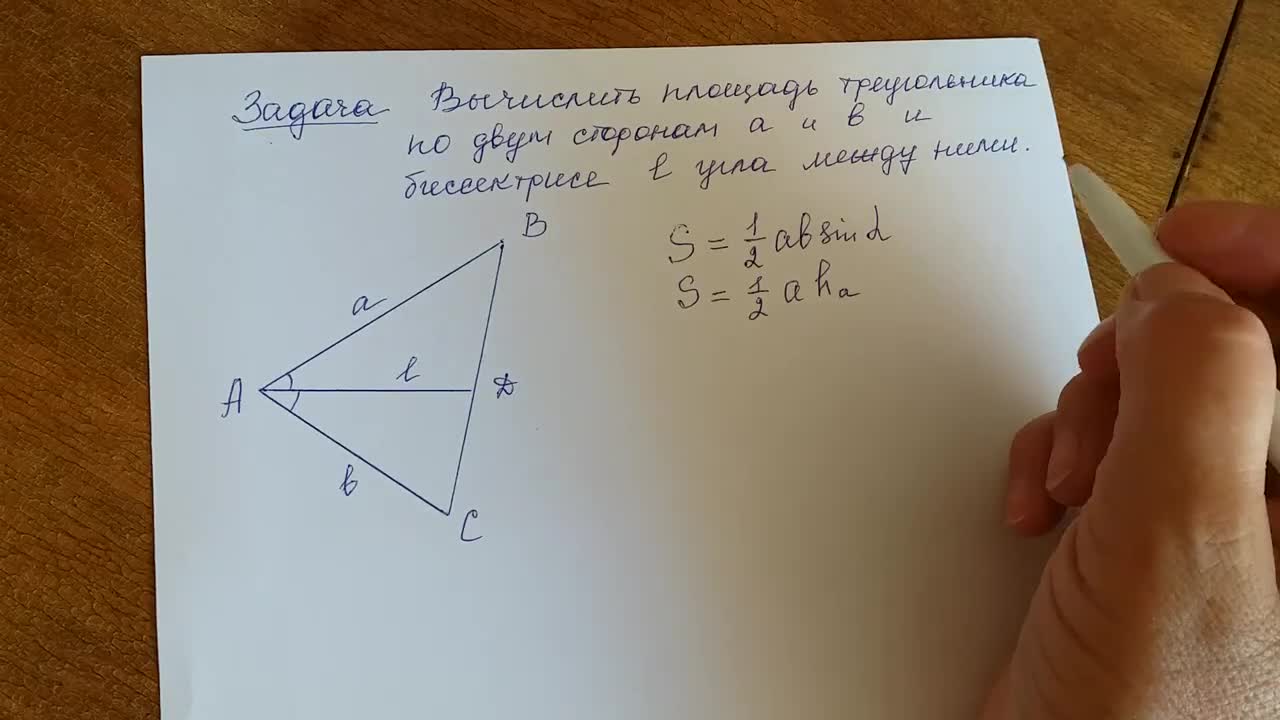 Задача Вычислить площадь треугольника
по двум сторонам a и b и
биссектрисе l угла между ними.
B
S = 1/2 ab sin α
S = 1/2 a hₐ
a
l
D
A
b
C